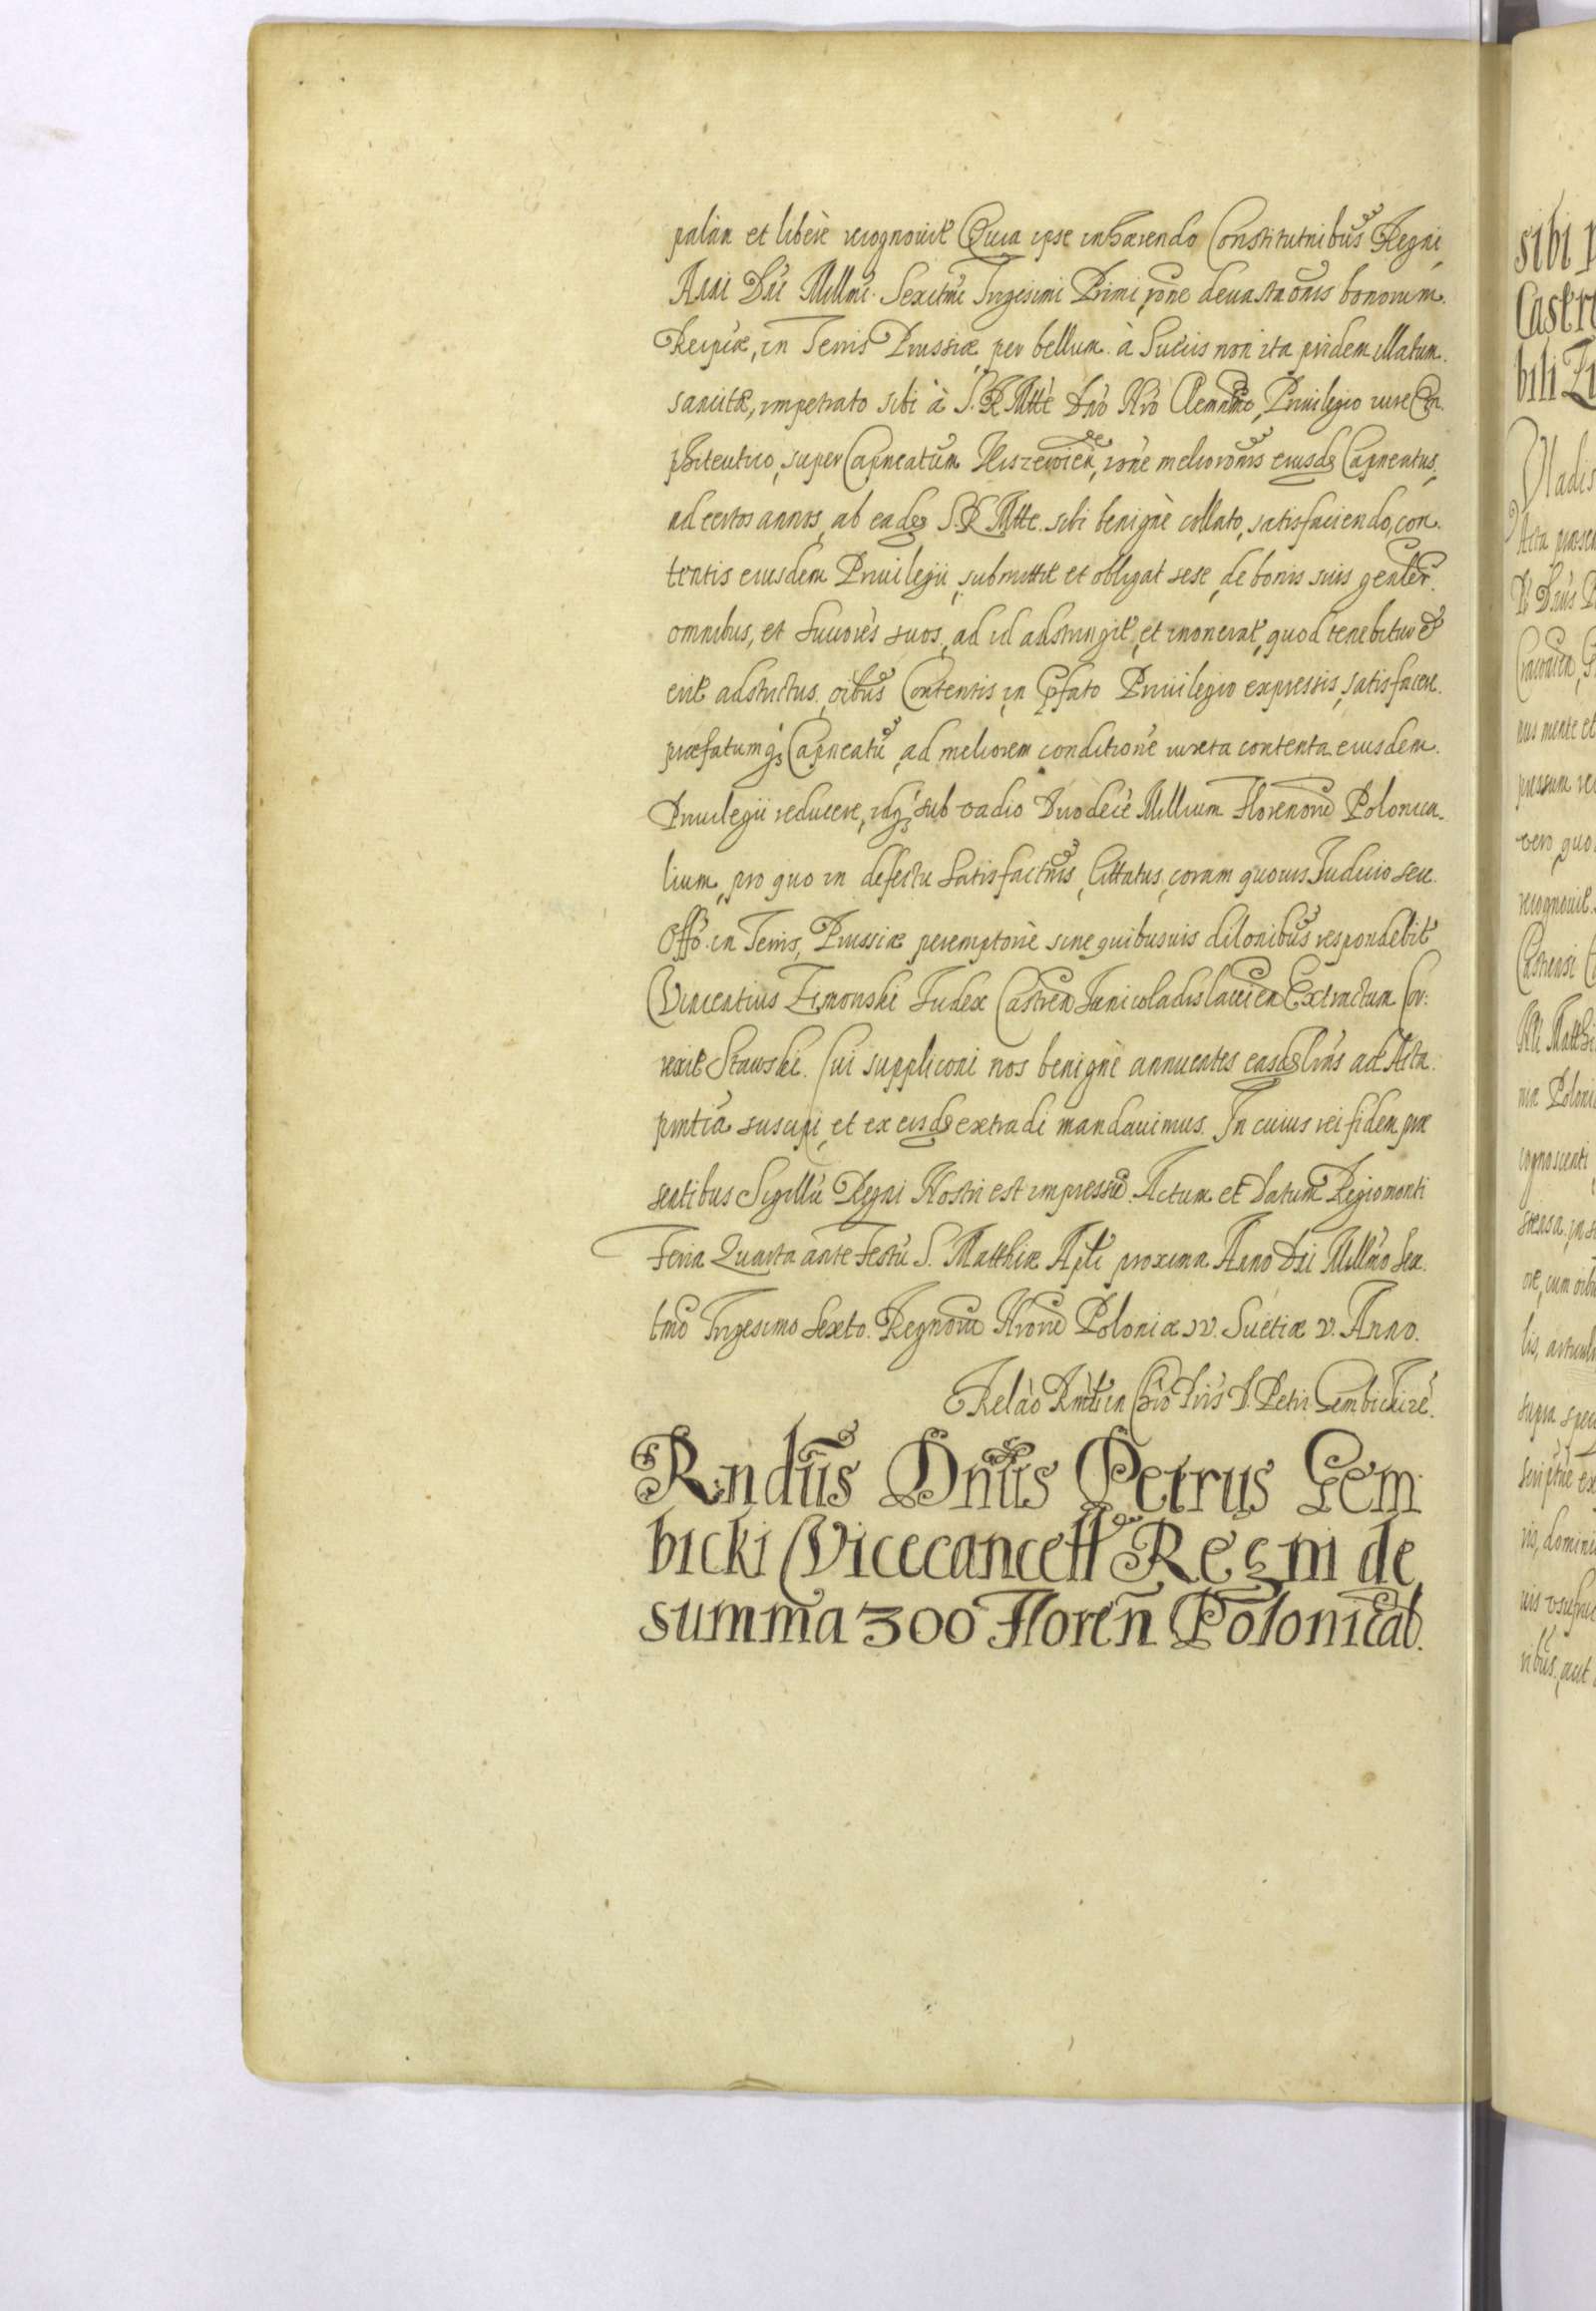 palàm et liberè recognouit Quia ipse inhærendo Constitutnibus Regni,
Anni Dñi Millmi Sexctmi Trigesimi Primi rone deuastaõnis bonorum
Reipùcæ, in Terris Prussiæ, per bellum à Suecis non ita pridem illatum.
sancitæ, impetrato sibi à S. R. Mtte Dño Nrõ Clemmo, Priuilegio iure Em
phiteutico, super Capneatum Kiszewien, rone melioronis eiusdem Capneatus,
ad certos annos, ab eadem S. R. Mtte. sibi benignè collato, satisfaciendo, con
tentis eiusdem Priuilegii, submittit et obligat sese, de bonis suis genler.
omnibus, et Succores suos, ad id adstringit, et inonerat, quod tenebitur &
erit adstrictus, oibus Contentis in pfato Priuilegio expressis, satisfacere.
præfatumq; Capneatũ, ad meliorem conditionẽ iuxta contenta eiusdem.
Priuilegii reducere, idq; sub vadio Duodecẽ Millium Florenorũ Polonica
lium, pro quo in defectu Satisfactnis, Cittatus, coram quouis Judicio seu.
Offõ in Terris, Prussiæ peremptoriè sine quibusuis dilonibus respondebit
Vincentius Zimonski Judex Castren Junivladislauien Extractum Cor:
rexit Stawski. Cui suppliconi nos benignè annuentes easdem Lrãs ad Acta
pnntia suscipi, et ex eisdem extradi mandauimus. In cuius rei fidem præ
sentibus Sigillũ Regni Nostri est impressũ. Actum et Datum Regiomonti
Feria Quarta ante Festũ S. Matthiæ Apli proxima Anno Dñi Millmo Sex
tmo Trigesimo Sexto. Regnorũ Nrorũ Poloniæ IV. Suetiæ v. Anno.
Relão Rmi in Chrõ Pris D. Petri Gembicki ze.
Rndus Dnus Petrus Gem
bicki Vicecancell Regni de
summa 300 Floren Polonical.
sibi p
Castr
bili Zi
Vladis
Acta præsen
Dñs
Cracouien
nus mente et
pressum re
vero, quo
recognouit
Castrensi
Matthi
niæ Poloni
cognoscenti
ore, cum oib
lis, articul
supra spec
scriptũ ex
ris, domini
uis vsufruc
ribus, aut